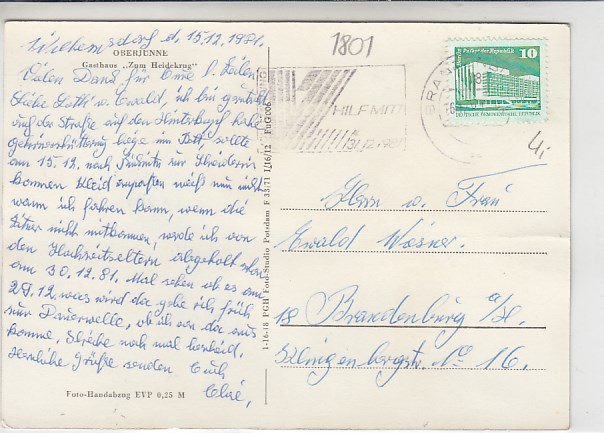 Wilhelmsdorf d. 15.12.1981.
OBERJÜNNE
Gasthaus „Zum Heidekrug"
Vielen Dank für Eure l. Zeilen
Liebe Edith u. Ewald, ich bin gestürzt
auf der Straße auf den Hinterkopf habe
Gehirnerschütterung liege im Bett, sollte
am 15.12. nach zur Schneiderin
kommen Kleid anpassen weiß nun nicht
wann ich fahren kann, wenn die
nicht mitkommen, werde ich von
den Hochzeitseltern abgeholt
am 30.12.81. Mal sehen ob es am
28.12. was wird da gehe ich früh
zur Dauerwelle, ob ich von da aus
komme, schreibe noch mal bescheid.
Herzliche Grüße senden Euch
Foto-Handabzug EVP 0,25 M
1-16-18 PGH Foto-Studio Potsdam F 3371 1/16/12 FuG 06
1801
HILF MIT!
10
DEUTSCHE DEMOKRATISCHE REPUBLIK
4,-
Herrn u. Frau
Ewald
18 Brandenburg a/H.
No 16.